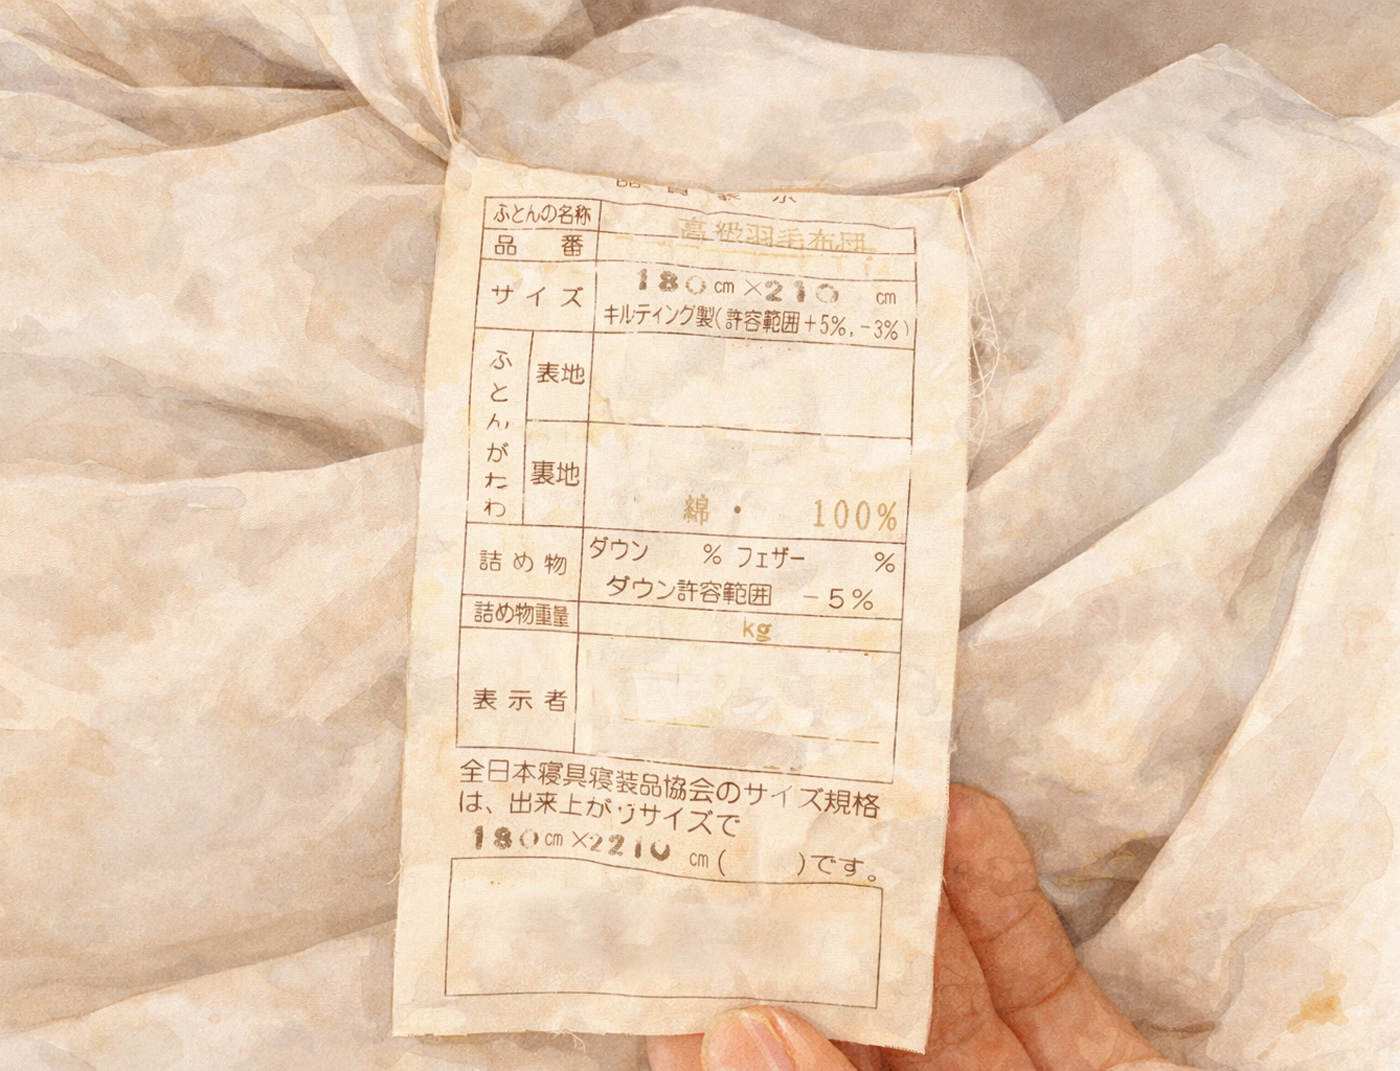 品質表示
ふとんの名称 高級羽毛布団
品番
サイズ 180cm×210 cm
キルティング製(許容範囲+5%,-3%)
ふとんがわ
表地
裏地
綿・ 100%
詰め物 ダウン % フェザー %
ダウン許容範囲 -5%
詰め物重量 kg
表示者
全日本寝具寝装品協会のサイズ規格
は、出来上がりサイズで
180cm×2210 cm( )です。